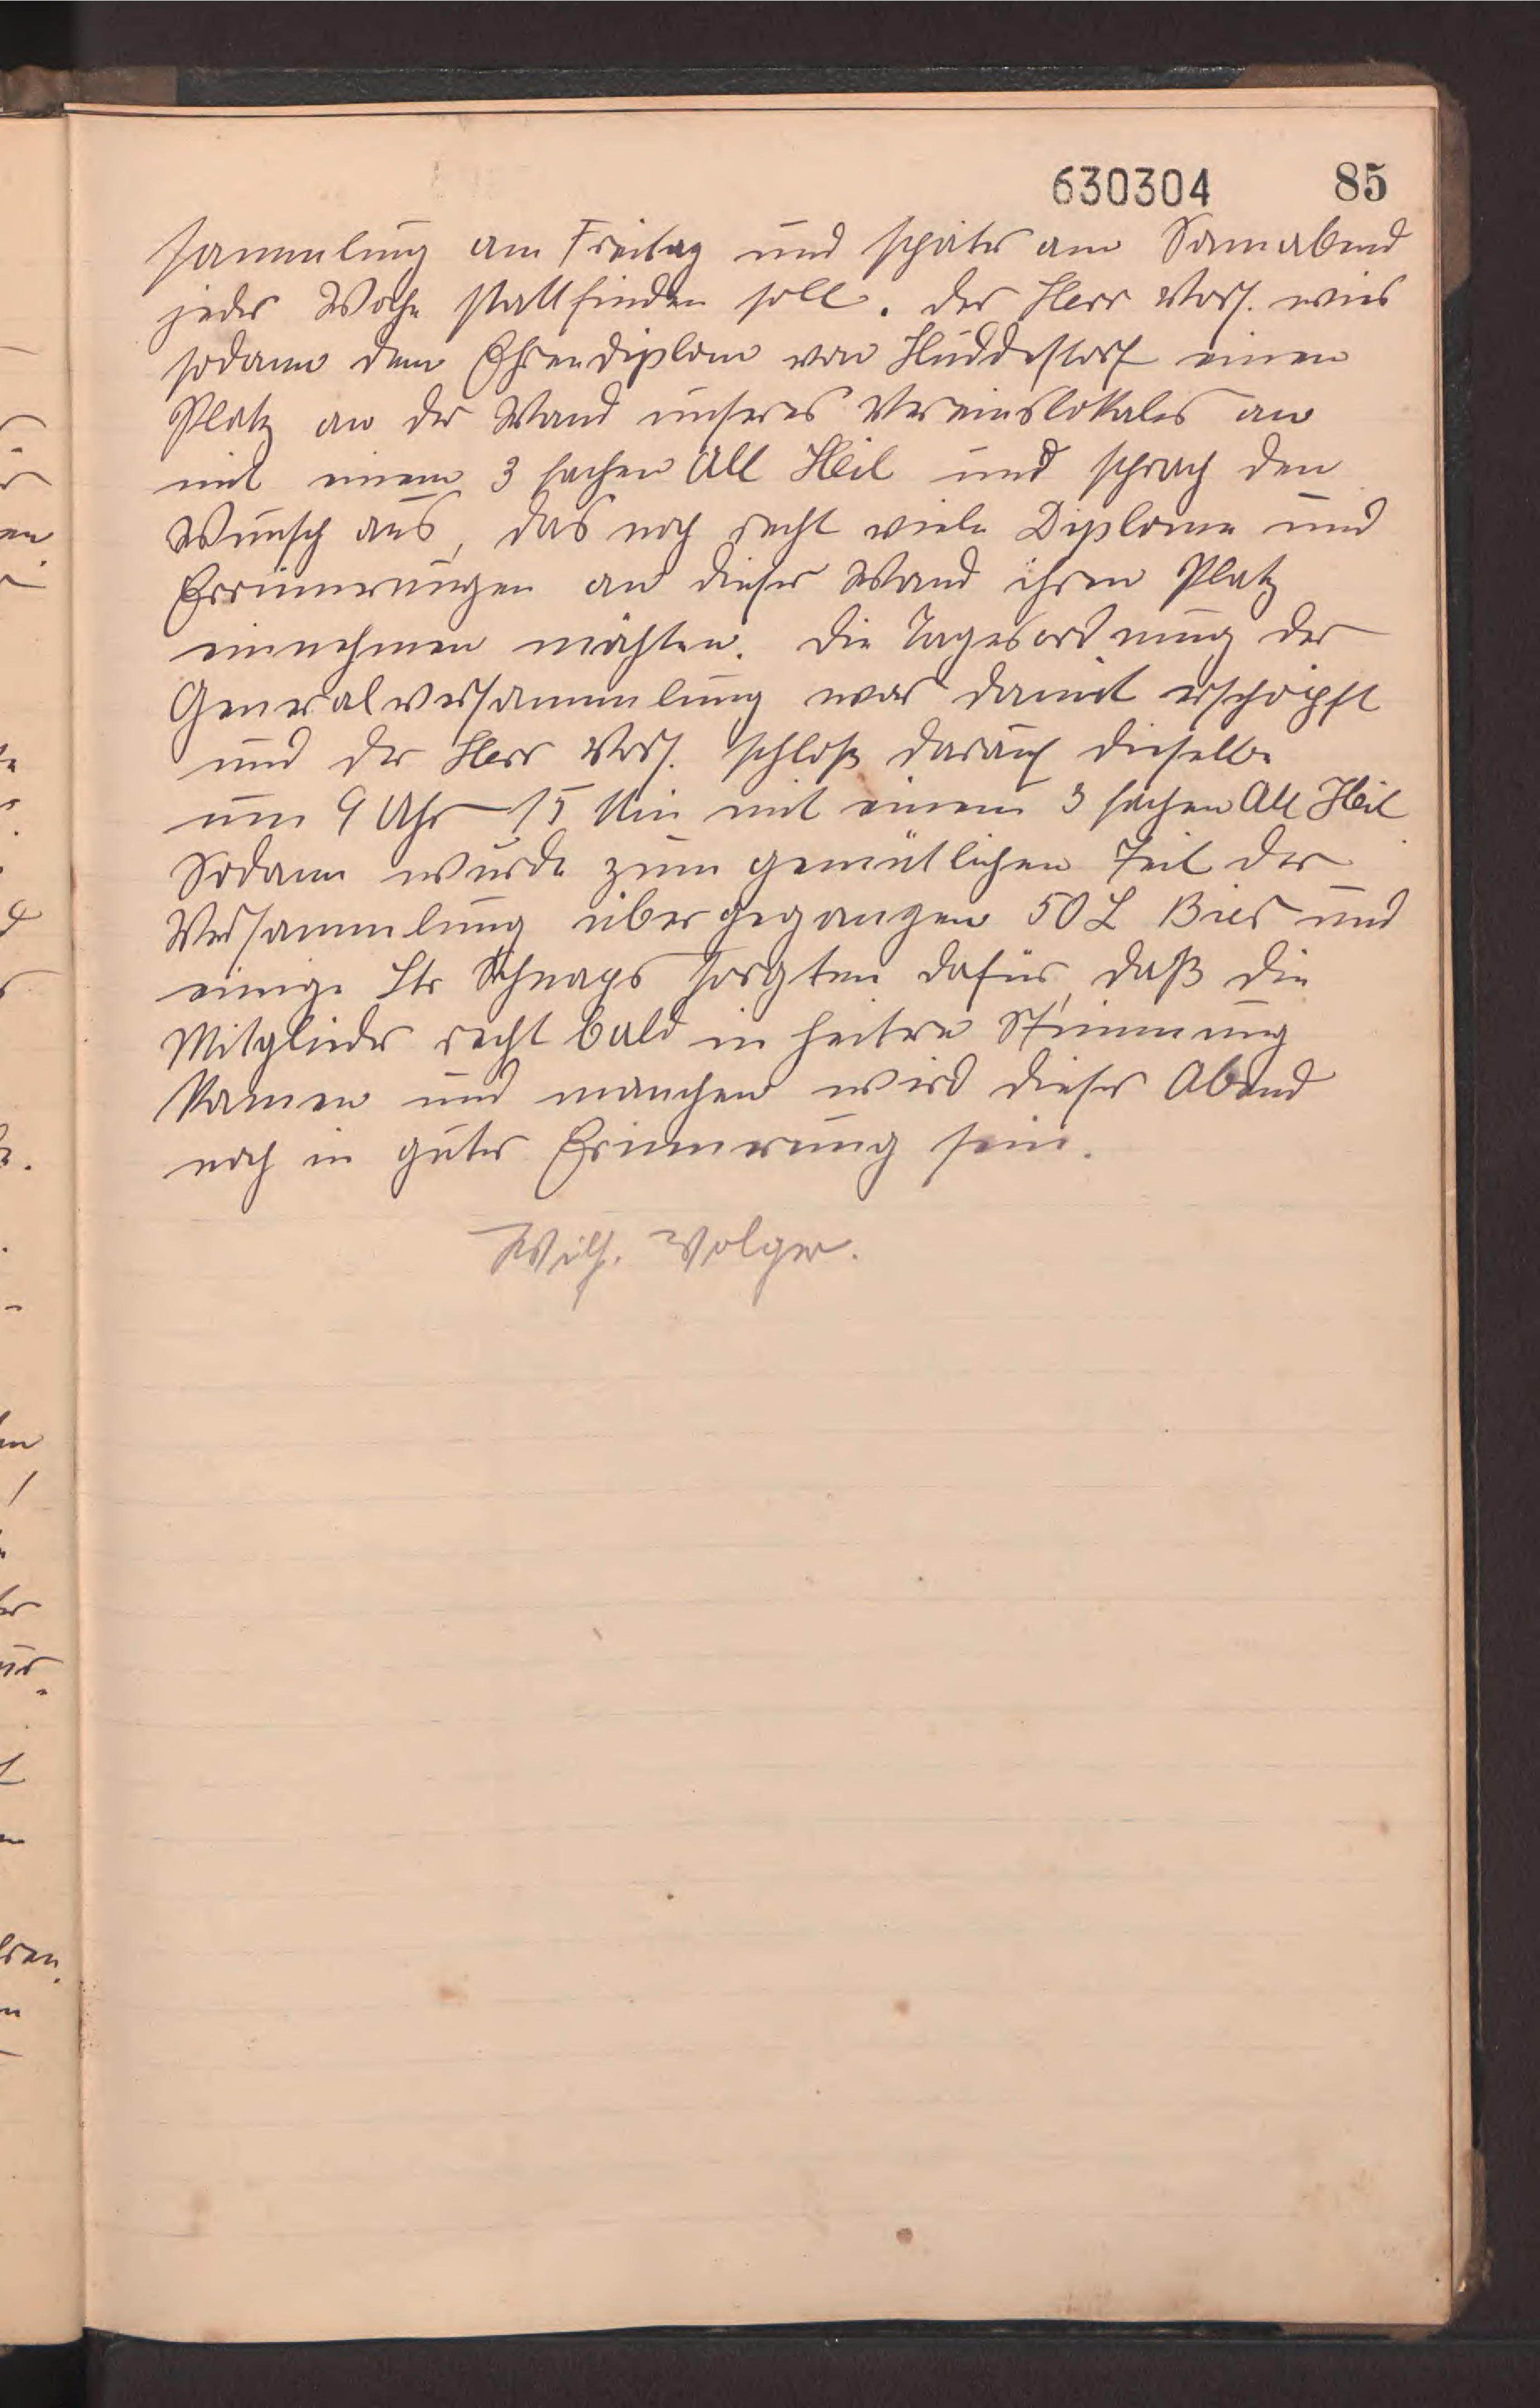 630304 85
sammlung am Freitag und später am Sonnabend
jeder Woche stattfinden soll. Der Herr Vors. wies
sodann dem Ehrendiplom von Huddestorf einen
Platz an der Wand unseres Vereinslokales an
mit einem 3 fachen All Heil und sprach den
Wunsch aus, das noch recht viele Diplome und
Errinnerungen an dieser Wand ihren Platz
einnehmen möchten. Die Tagesordnung der
Generalversammlung war damit erschöpft
und der Herr Vors. schloß darauf dieselbe
um 9 Uhr 15 Min mit einem 3 fachen All Heil
Sodann wurde zum gemütlichen Teil der
Versammlung übergegangen 50 L Bier und
einige Ltr Schnaps sorgten dafür, daß die
Mitglieder recht bald in heitere Stimmung
kamen und manchen wird dieser Abend
noch in guter Erinnerung sein.
Wilh. Volger.